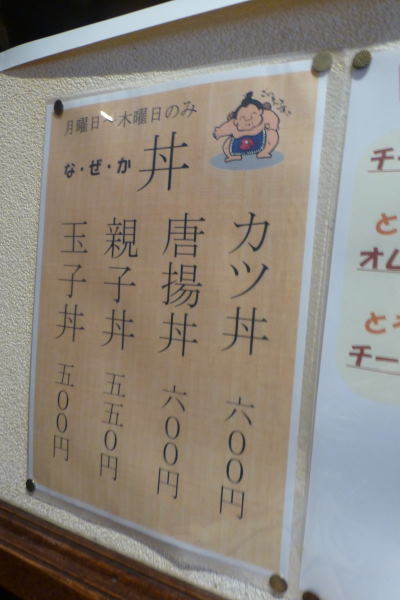 月曜日～木曜日のみ
な・ぜ・か 丼
カツ丼 六〇〇円
唐揚丼 六〇〇円
親子丼 五五〇円
玉子丼 五〇〇円
チー
と
オム
とろ
チー